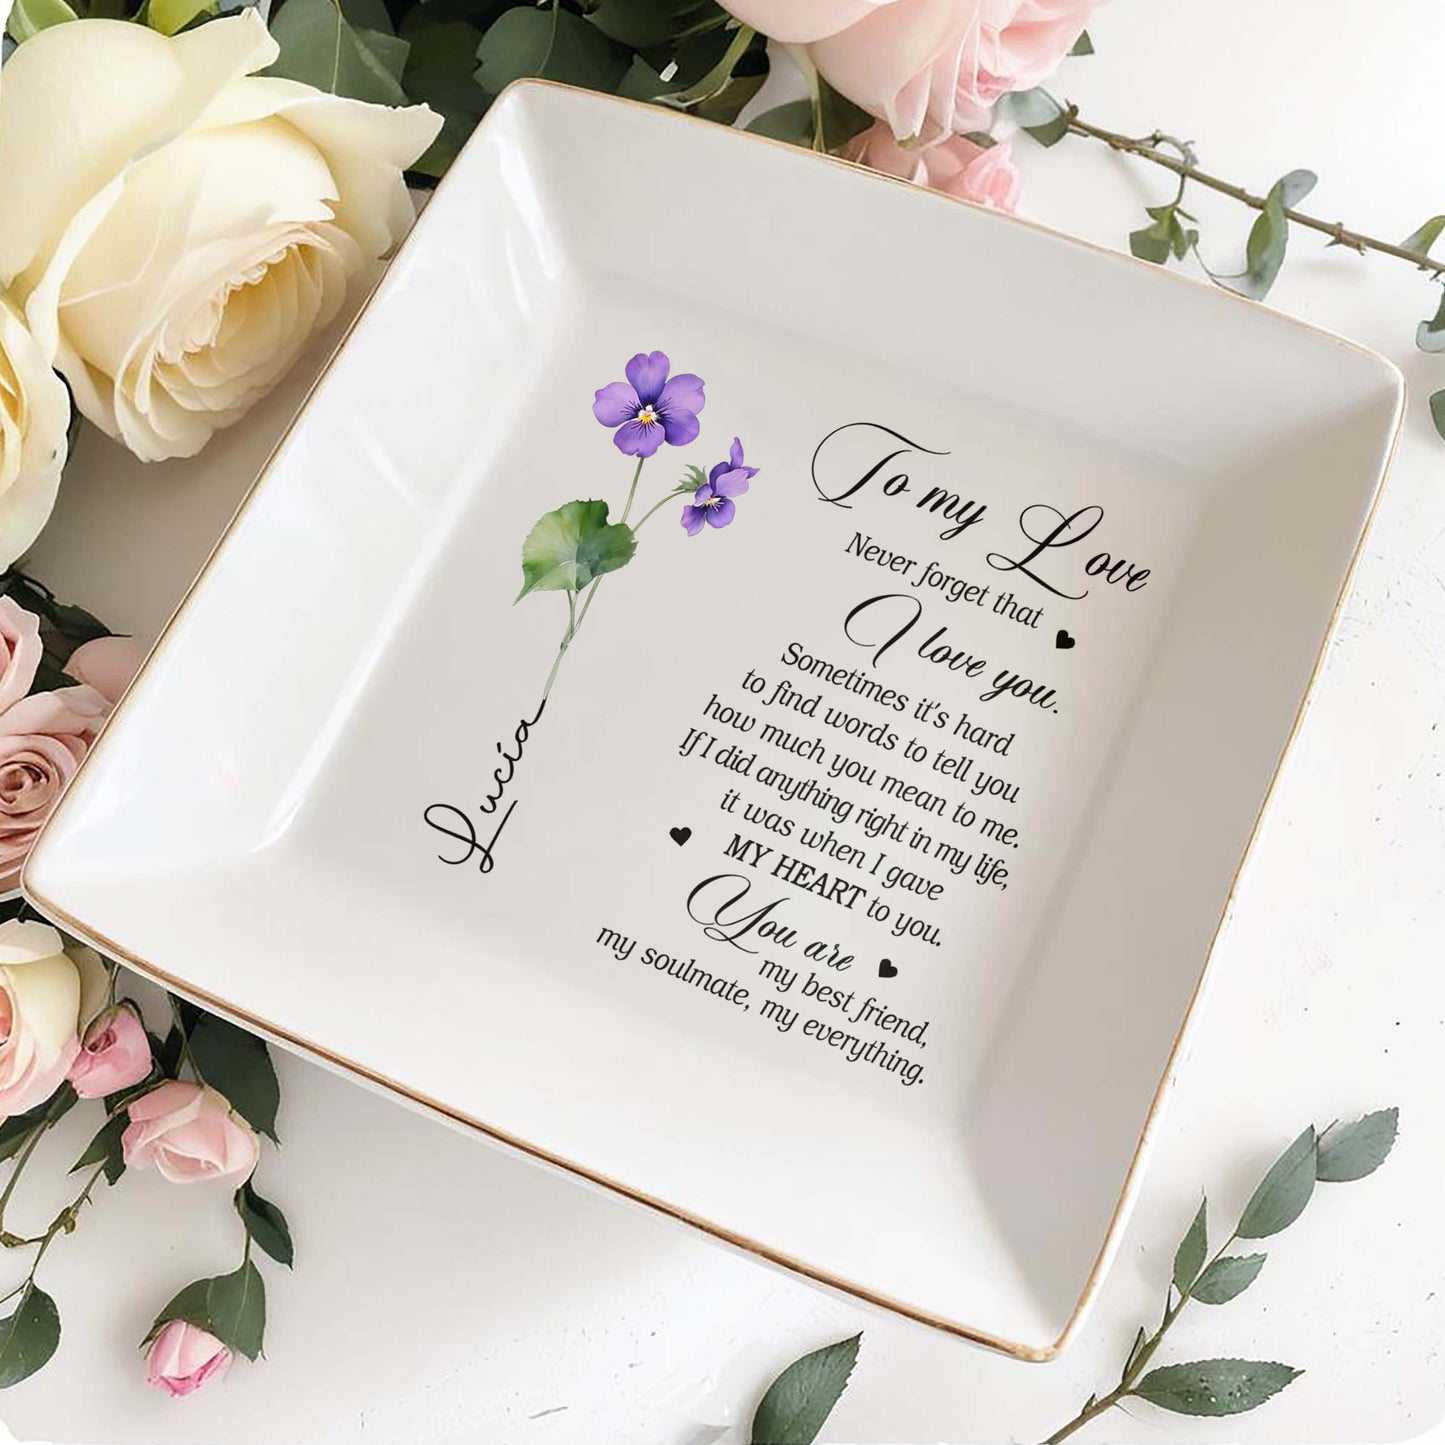 Lucía
To my Love
Never forget that
I love you.
Sometimes it's hard
to find words to tell you
how much you mean to me.
If I did anything right in my life,
it was when I gave
MY HEART to you.
You are
my best friend,
my soulmate, my everything.